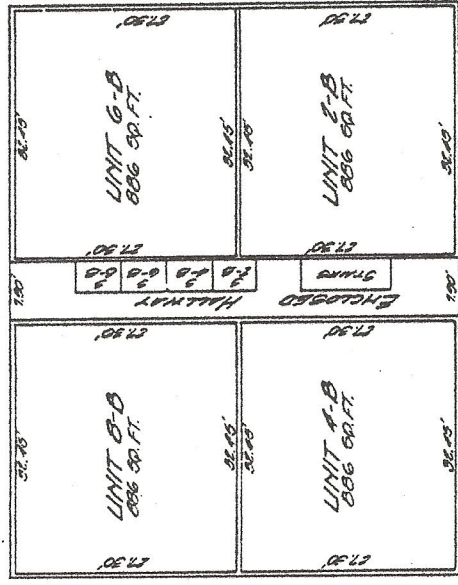 27.30'
27.30'
32.45'
UNIT 6-B
886 SQ. FT.
32.45'
32.45'
UNIT 2-B
886 SQ. FT.
32.45'
27.30'
27.30'
7.90'
8-B
6-B
4-B
2-B
STAIRS
7.90'
ENCLOSED HALLWAY
27.30'
27.30'
32.45'
UNIT 8-B
886 SQ. FT.
32.45'
32.45'
UNIT 4-B
886 SQ. FT.
32.45'
27.30'
27.30'